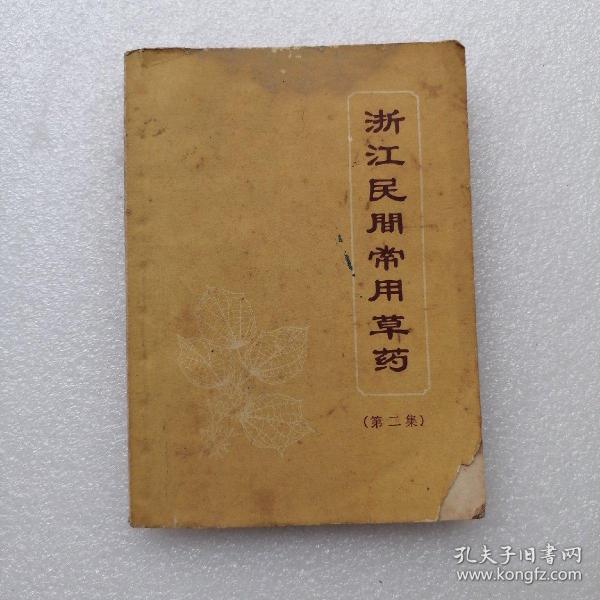 浙江民間常用草药
(第二集)
孔夫子旧書网
www.kongfz.com